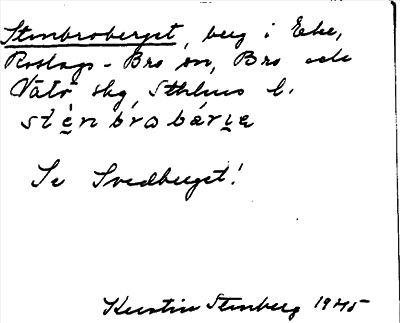 Stenbroberget, berg i Eke,
Roslags-Bro sn, Bro och
Vätö skg, Sthlms l.
stènbrobærıe
Se Svedberget!
Kerstin Stenberg 1945